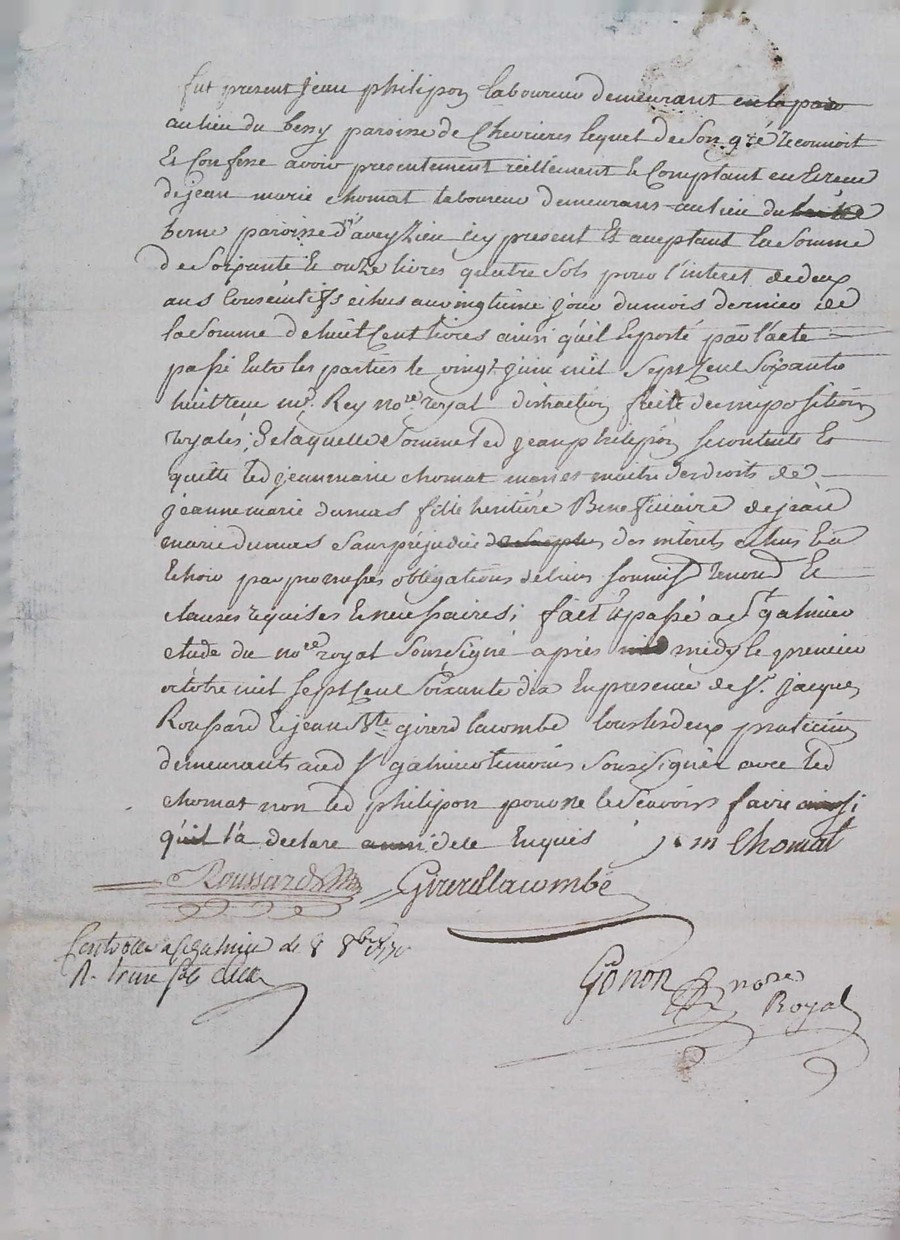 fut present jean philipon laboureur demeurant en la paro
au lieu du bessy paroisse de Chevrieres lequel de son gré reconnoit
Et Confesse avoir presentement réellement et Comptant eu Et receu
de jean marie chomat laboureur demeurans au lieu du
berne paroisse d'aveyzieu icy present Et aceptant la Somme
de Soixante Et onze livres quatre Sols pour l'interet de deux
ans Consecutifs echus au vingtieme jour du mois dernier de
la Somme de huit Cent livres ainsi qu'il Est porté par l'acte
passé Entre les parties le vingt juin mil Sept Cent Soixante
huit reçu me. Rey nore royal distraction faite des impositions
royales; de laquelle Somme led jean philipon se contente Et
quitte led jean marie chomat mari et maitre des droits de
jeanne marie dumas fille heritiere Beneficiaire de jean
marie dumas Sans préjudice de Surplus des interets echus Et a
Echoir par promesses obligations de biens soumiss renond Et
clauses requises Et necessaires; fait Et passé a St galmier
etude du nore royal Soussigné après midy le premier
octobre mil Sept Cent Soixante dix En presence de Sr. jacques
Roussard Et jean Bte girard lacombe tous les deux praticiens
demeurants aud St galmier temoins Soussignés avec led
chomat non led philipon pour ne le Scavoir faire ainsi
qu'il l'a declaré de ce Enquis j m Chomat
Roussard Girard lacombe
Controllé a St galmier le 8 8bre 1770
R. treize sols
Gonon nore
Royal